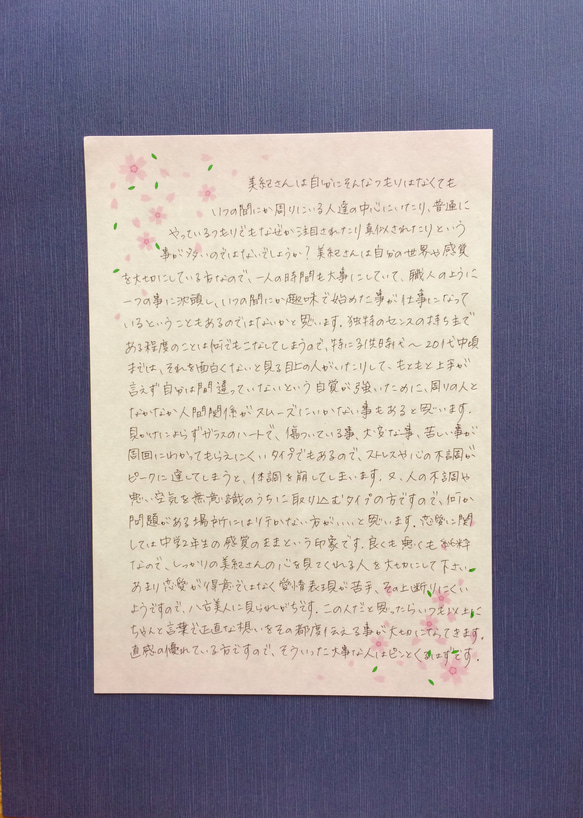 美紀さんは自分にそんなつもりはなくても
いつの間にか周りにいる人達の中心にいたり、普通に
やっているつもりでもなぜか注目されたり真似されたりという
事が多いのではないでしょうか？美紀さんは自分の世界や感覚
を大切にしている方なので、一人の時間も大事にしていて、職人のように
一つの事に没頭し、いつの間にか趣味で始めた事が仕事になって
いるということもあるのではないかと思います。独特のセンスの持ち主で
ある程度のことは何でもこなしてしまうので、特に子供時代〜20代中頃
までは、それを面白くないと見る目上の人がいたりして、もともと上手が
言えず自分は間違っていないという自覚が強いために、周りの人と
なかなか人間関係がスムーズにいかない事もあると思います。
見かけによらずガラスのハートで、傷ついている事、大変な事、苦しい事が
周囲にわかってもらえにくいタイプでもあるので、ストレスや心の不調が
ピークに達してしまうと、体調を崩してしまいます。又、人の不調や
悪い空気を無意識のうちに取り込むタイプの方ですので、何か
問題がある場所には行かない方がいいと思います。恋愛に関
しては中学2年生の感覚のままという印象です。良くも悪くも純粋
なので、しっかりの美紀さんの心を見てくれる人を大切にして下さい
あまり恋愛が得意ではなく愛情表現が苦手、その上断りにくい
ようですので、八方美人に見られがちです。この人だと思ったらいつも以上に
ちゃんと言葉で正直な想いをその都度伝える事が大切になってきます。
直感の優れている方ですので、そういった大事な人はピンとくるはずです。